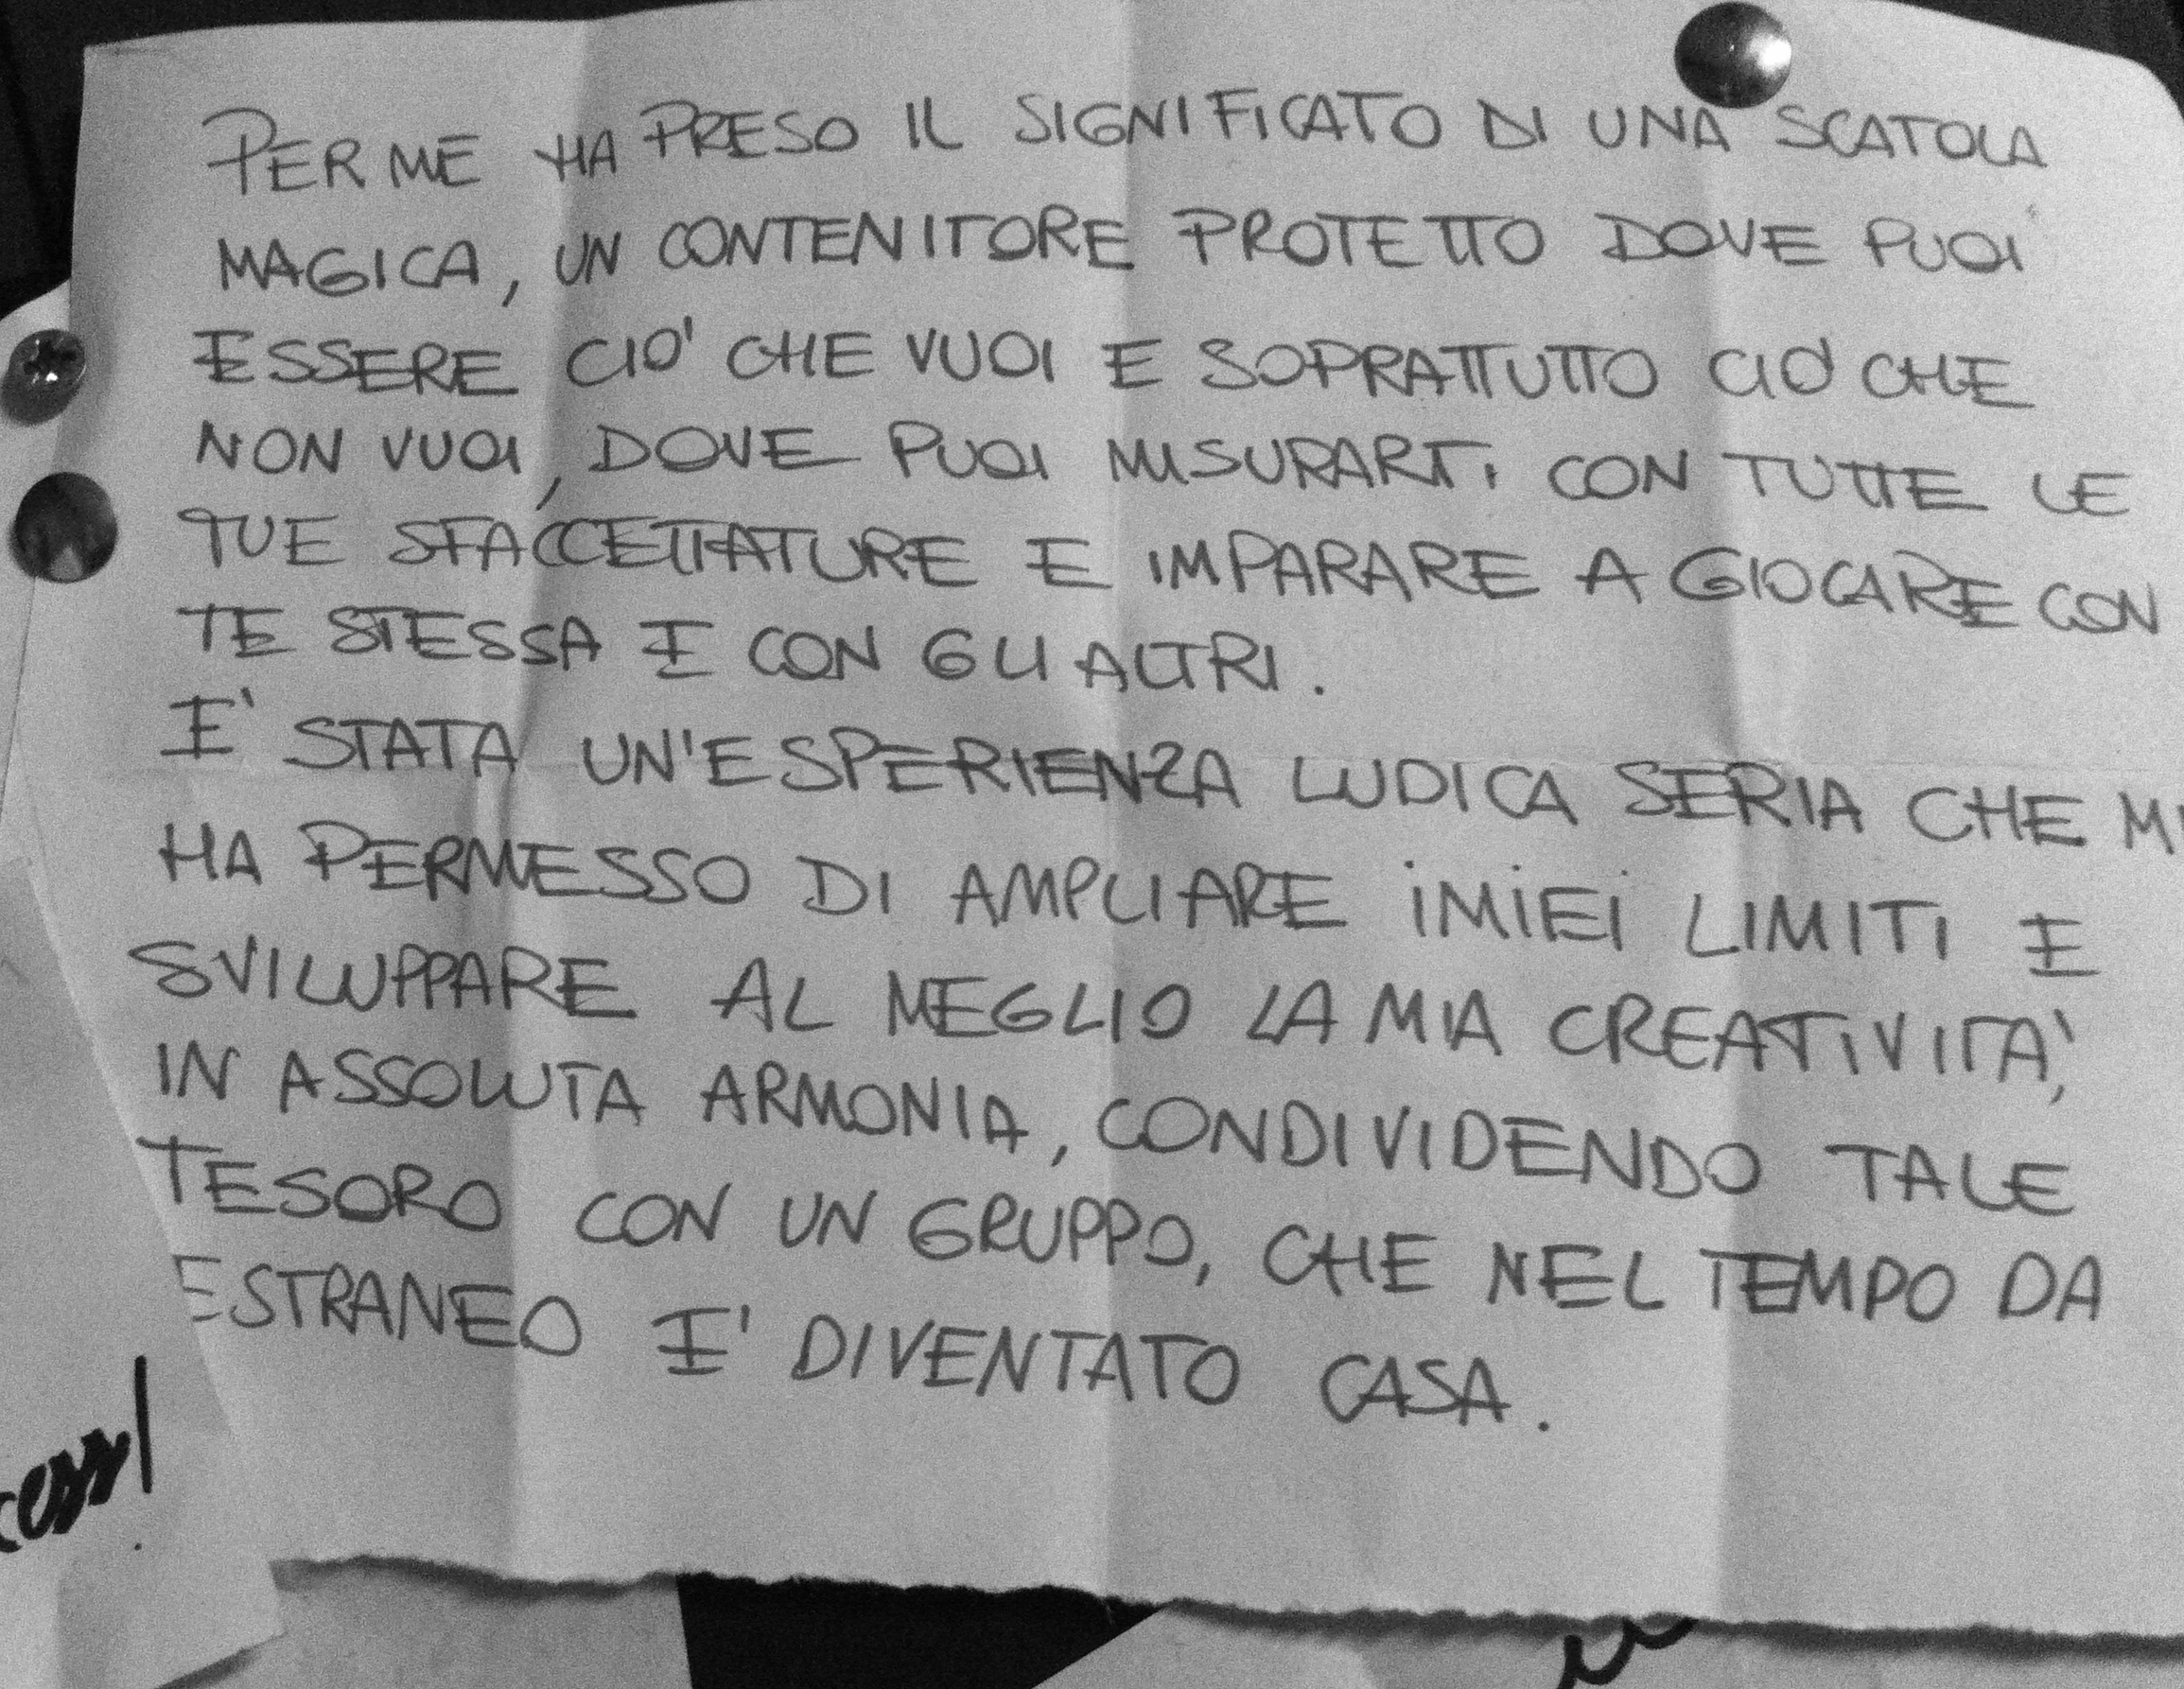 PER ME HA PRESO IL SIGNIFICATO DI UNA SCATOLA
MAGICA, UN CONTENITORE PROTETTO DOVE PUOI
ESSERE CIO' CHE VUOI E SOPRATTUTTO CIO' CHE
NON VUOI, DOVE PUOI MISURARTI CON TUTTE LE
TUE SFACCETTATURE E IMPARARE A GIOCARE CON
TE STESSA E CON GLI ALTRI.
E' STATA UN'ESPERIENZA LUDICA SERIA CHE MI
HA PERMESSO DI AMPLIARE I MIEI LIMITI E
SVILUPPARE AL MEGLIO LA MIA CREATIVITA',
IN ASSOLUTA ARMONIA, CONDIVIDENDO TALE
TESORO CON UN GRUPPO, CHE NEL TEMPO DA
ESTRANEO E' DIVENTATO CASA.